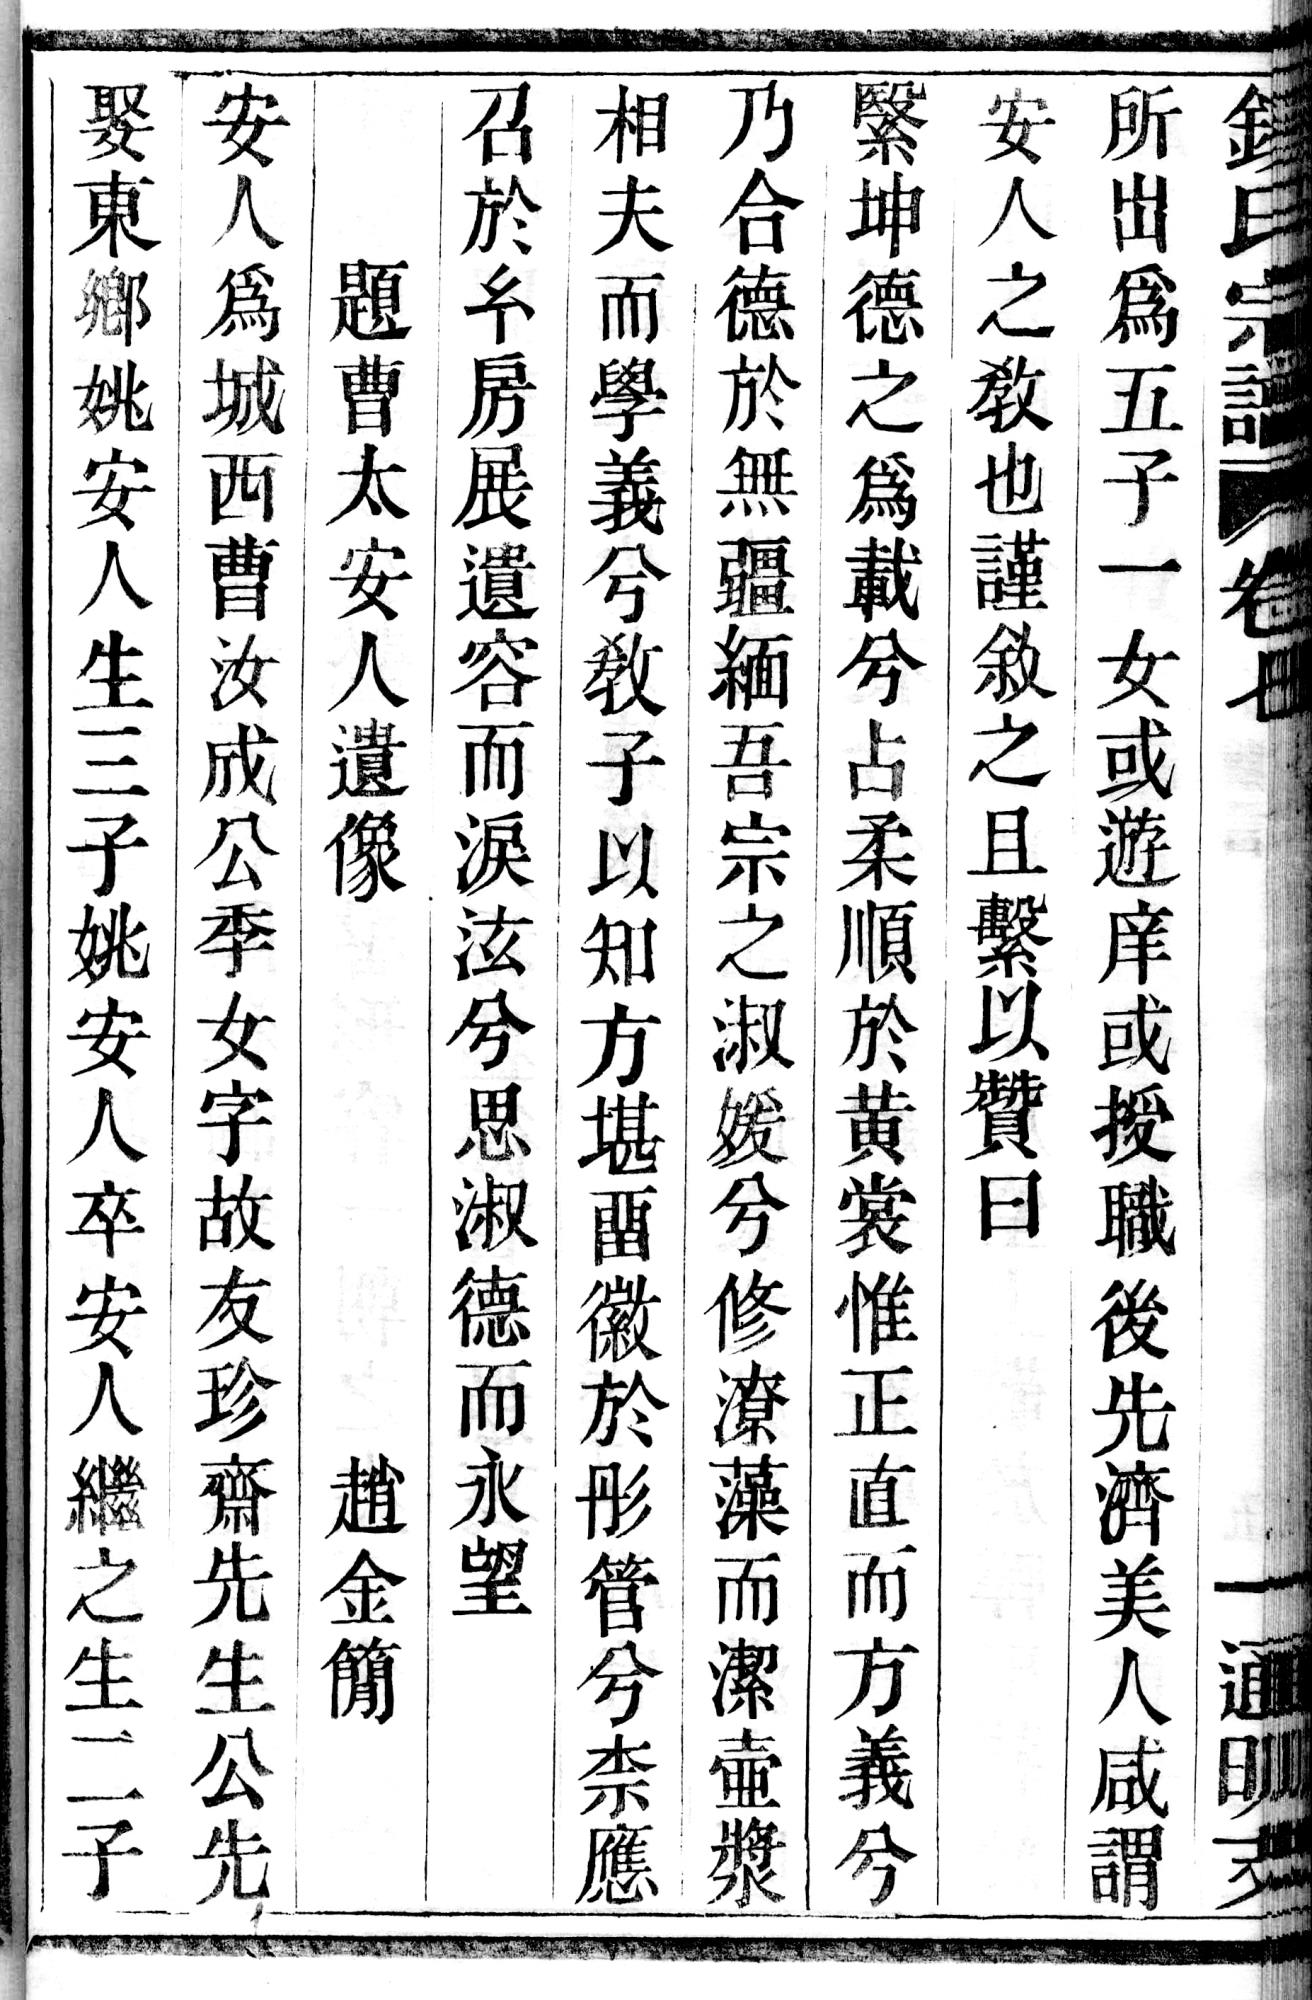 氏宗譜 卷七 一 通明
所出爲五子一女或遊庠或授職後先濟美人咸謂
安人之敎也謹敘之且繫以贊曰
緊坤德之爲載兮占柔順於黃裳惟正直而方義兮
乃合德於無疆緬吾宗之淑媛兮修潦藻而潔壺漿
相夫而學義兮敎子以知方堪畱徽於彤管兮柰應
召於兯房展遺容而淚泫兮思淑德而永望
題曹太安人遺像 趙金簡
安人爲城西曹汝成公季女字故友珍齋先生公先
娶東鄉姚安人生三子姚安人卒安人繼之生二子